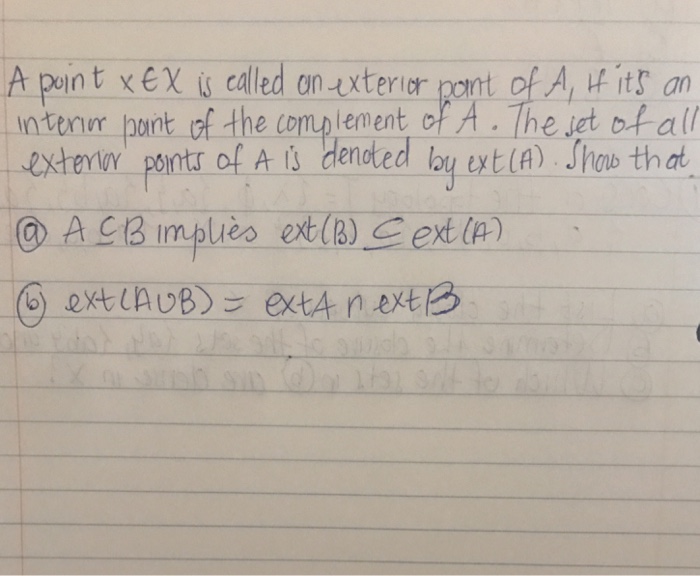 A point x ∈ X is called an exterior point of A, if it's an
interior point of the complement of A. The set of all
exterior points of A is denoted by ext(A). Show that
(a) A ⊆ B implies ext(B) ⊆ ext(A)
(b) ext(A∪B) = extA ∩ extB